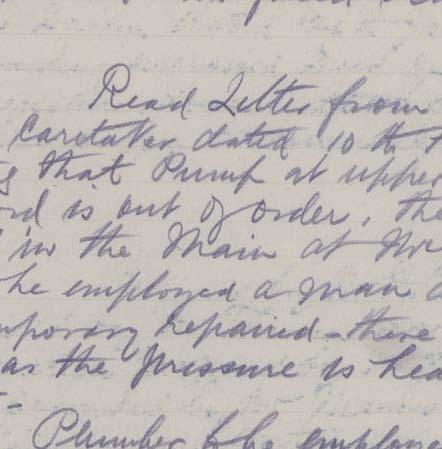 Read Letter from
Caretaker dated 10th
that Pump at upper
ord is out of order, the
in the Main at
he employed a man
mporary repaired - there
as the pressure is hea
Plumber to be employe